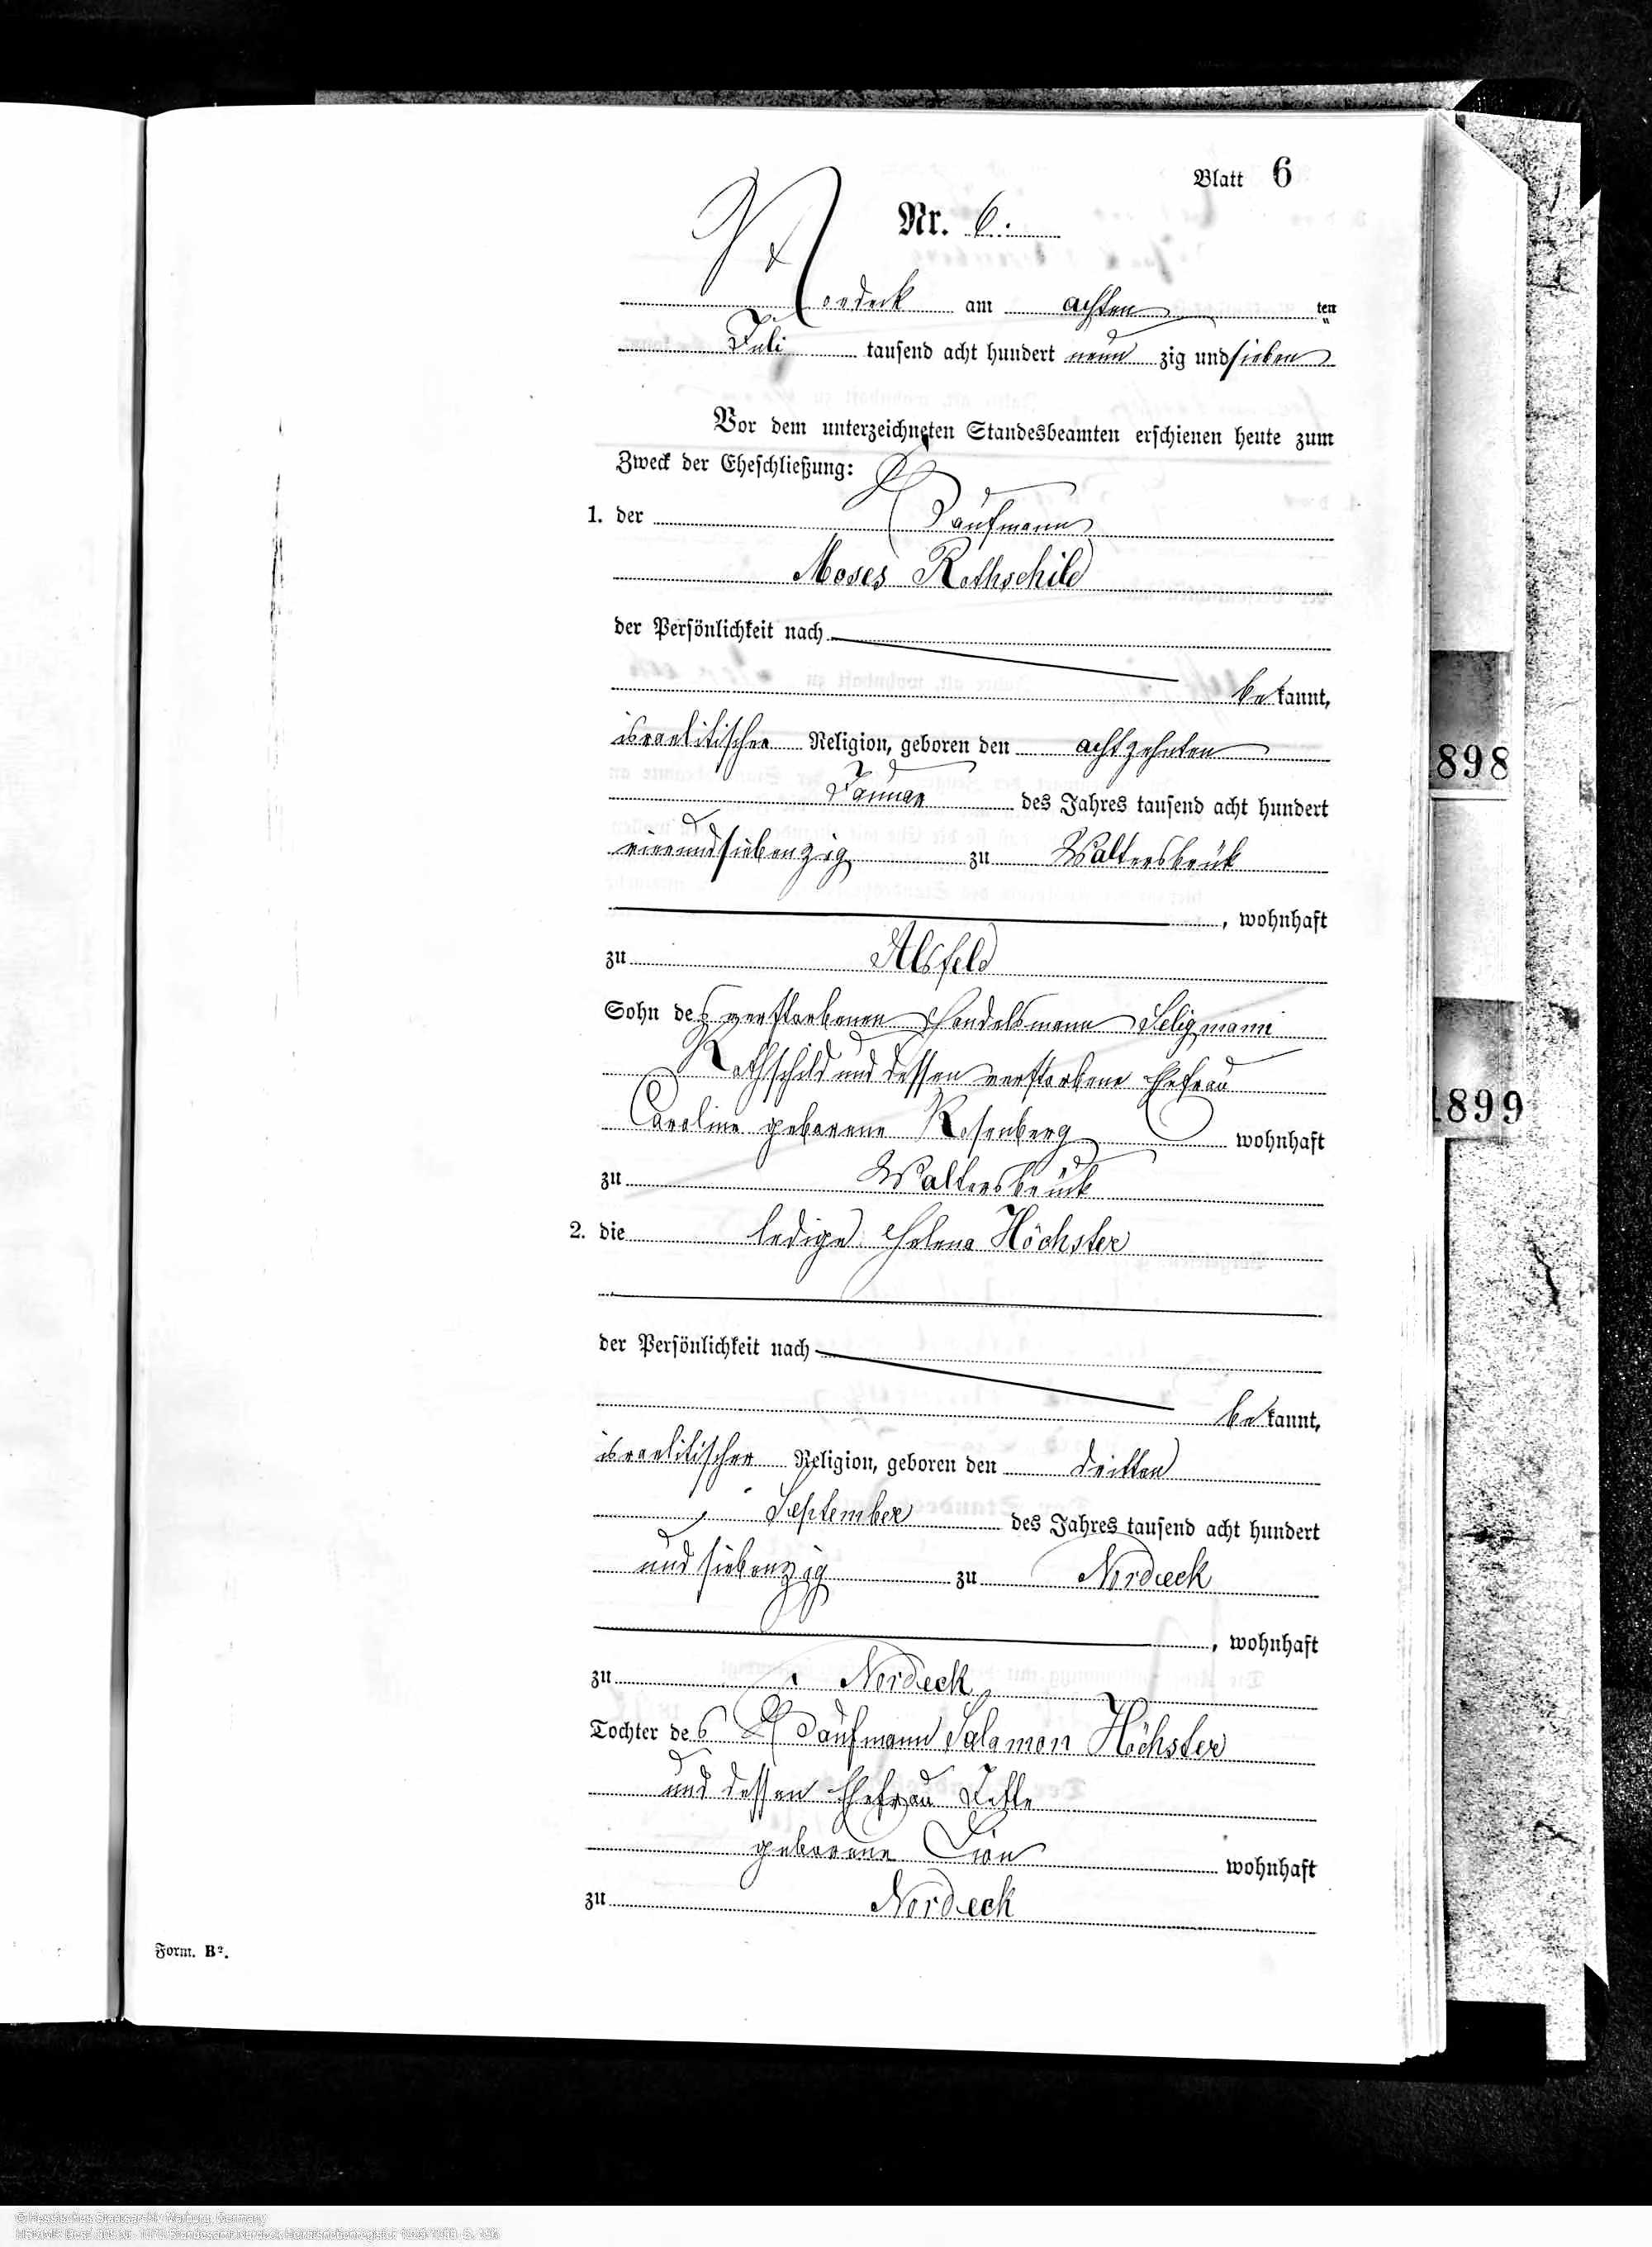 Blatt 6
Nr. 6.
Nordeck am achten ten
Juli tausend acht hundert neun zig und sieben
Vor dem unterzeichneten Standesbeamten erschienen heute zum
Zweck der Eheschließung:
1. der Kaufmann
Moses Rothschild
der Persönlichkeit nach
be kannt,
israelitischer Religion, geboren den achtzehnten
Januar des Jahres tausend acht hundert
einundsiebenzig zu Waltersbrük
, wohnhaft
zu Alsfeld
Sohn des verstorbenen Handelsmann Seligmann
Rothschild und dessen verstorbene Ehefrau
Caroline geborene Rosenberg wohnhaft
zu Waltersbrück
2. die ledige Helena Höchster
der Persönlichkeit nach
be kannt,
israelitischer Religion, geboren den dritten
September des Jahres tausend acht hundert
und siebenzig zu Nordeck
, wohnhaft
zu Nordeck
Tochter des Kaufmann Salamon Höchster
und dessen Ehefrau Jette
geborene Lion wohnhaft
zu Nordeck
Form. B².
1898
1899